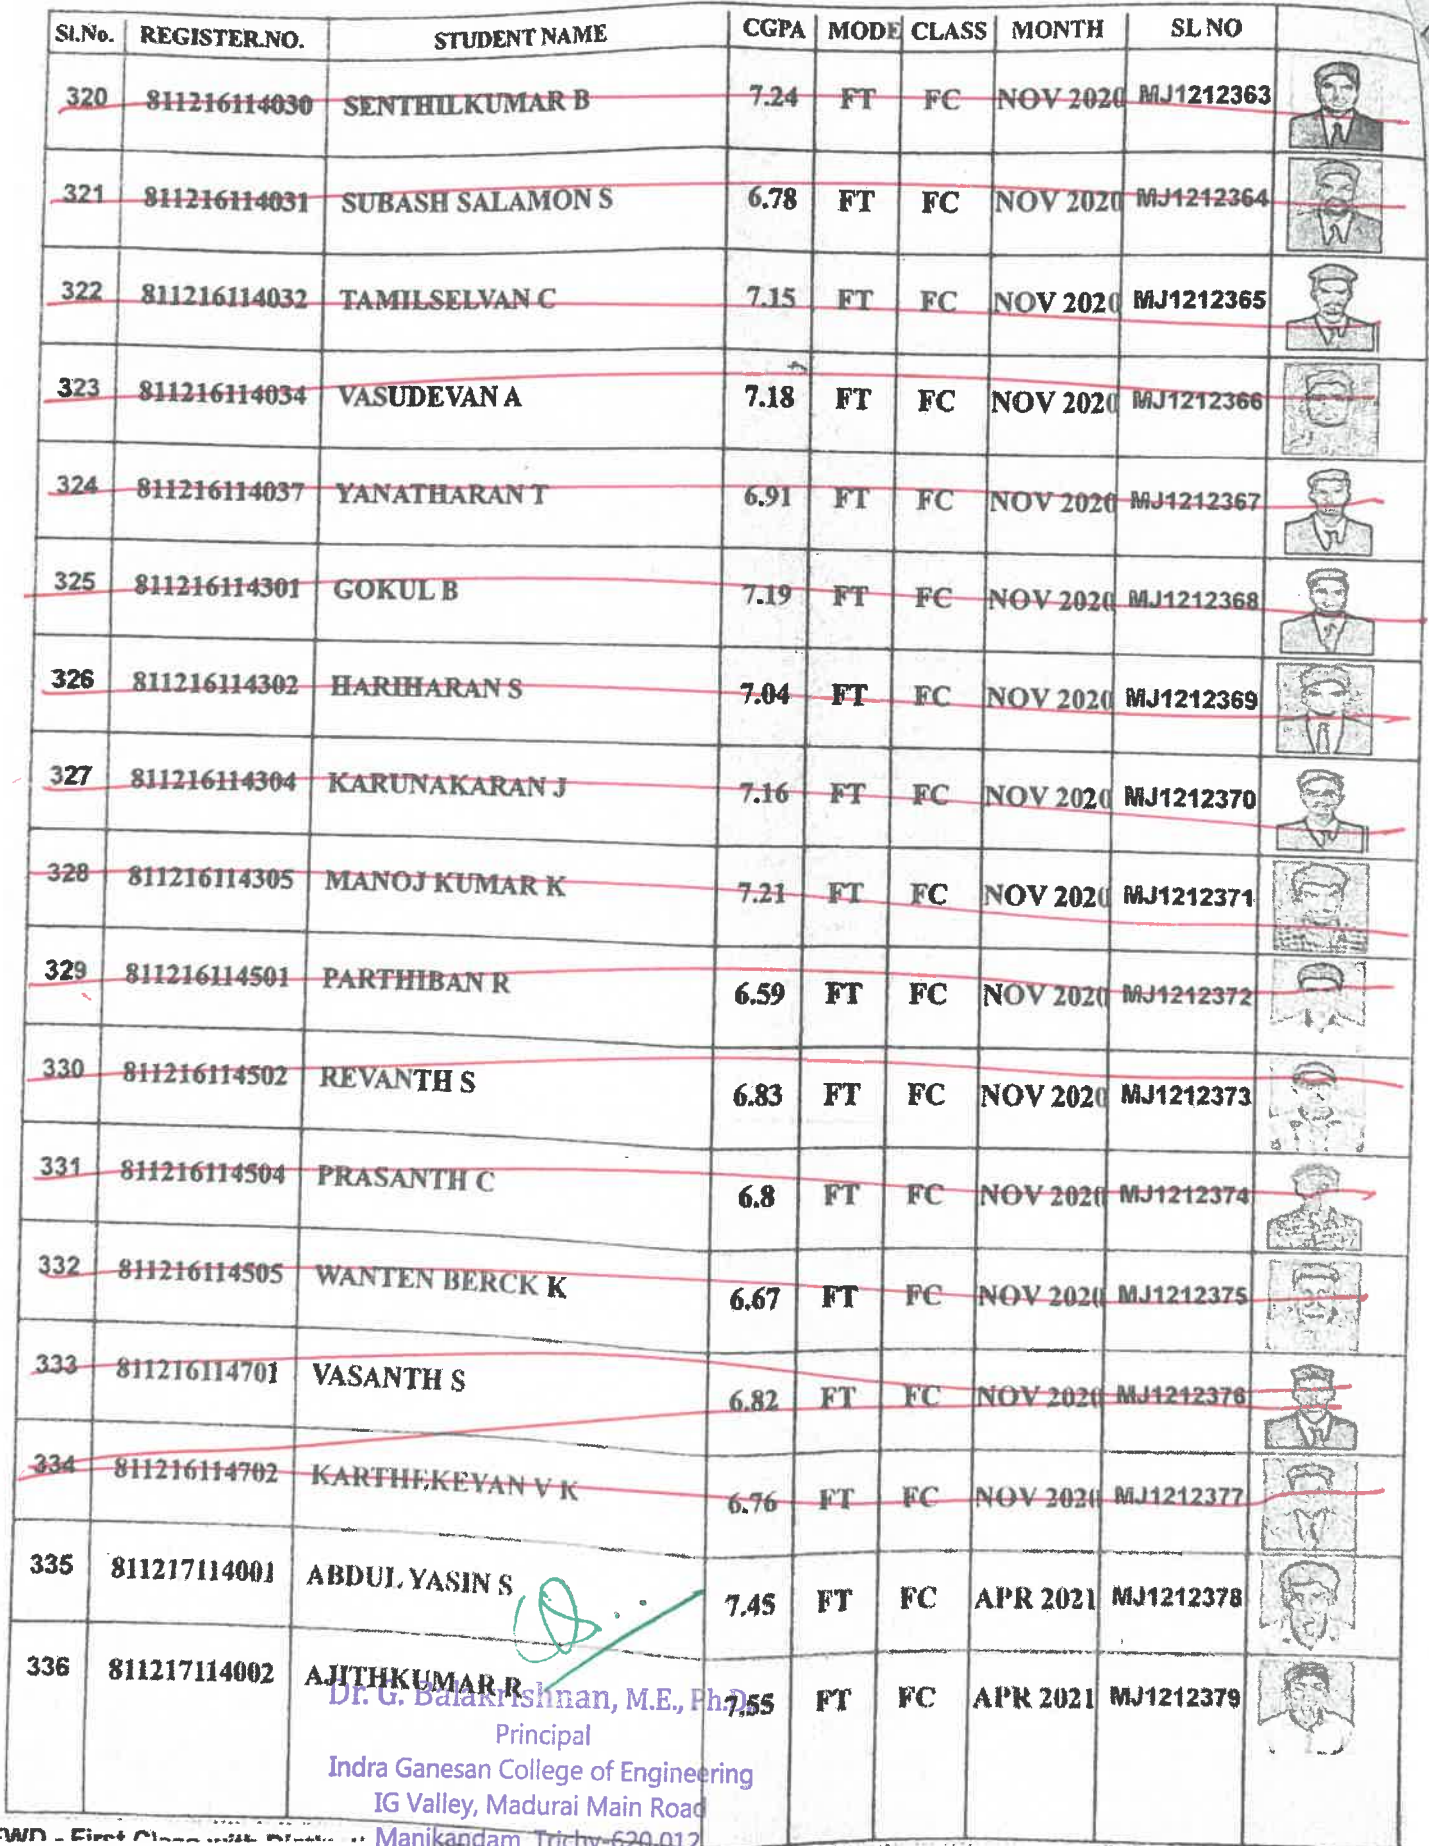 Sl.No. REGISTER.NO. STUDENT NAME CGPA MODE CLASS MONTH SL NO
320 811216114030 SENTHILKUMAR B 7.24 FT FC NOV 2020 MJ1212363
321 811216114031 SUBASH SALAMON S 6.78 FT FC NOV 2020 MJ1212364
322 811216114032 TAMILSELVAN C 7.15 FT FC NOV 2020 MJ1212365
323 811216114034 VASUDEVAN A 7.18 FT FC NOV 2020 MJ1212366
324 811216114037 YANATHARAN T 6.91 FT FC NOV 2020 MJ1212367
325 811216114301 GOKUL B 7.19 FT FC NOV 2020 MJ1212368
326 811216114302 HARIHARAN S 7.04 FT FC NOV 2020 MJ1212369
327 811216114304 KARUNAKARAN J 7.16 FT FC NOV 2020 MJ1212370
328 811216114305 MANOJ KUMAR K 7.21 FT FC NOV 2020 MJ1212371
329 811216114501 PARTHIBAN R 6.59 FT FC NOV 2020 MJ1212372
330 811216114502 REVANTH S 6.83 FT FC NOV 2020 MJ1212373
331 811216114504 PRASANTH C 6.8 FT FC NOV 2020 MJ1212374
332 811216114505 WANTEN BERCK K 6.67 FT FC NOV 2020 MJ1212375
333 811216114701 VASANTH S 6.82 FT FC NOV 2020 MJ1212376
334 811216114702 KARTHEKEYAN V K 6.76 FT FC NOV 2020 MJ1212377
335 811217114001 ABDUL YASIN S 7.45 FT FC APR 2021 MJ1212378
336 811217114002 AJITHKUMAR R 7.55 FT FC APR 2021 MJ1212379
Dr. G. Balakrishnan, M.E., Ph.D.
Principal
Indra Ganesan College of Engineering
IG Valley, Madurai Main Road
Manikandam, Trichy-620 012
First Class with